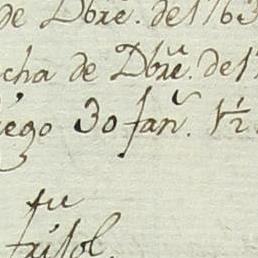 de Dbrẽ. de 1763
cha de Dbrẽ. de 1
iego 30 fan.s 1½
fri sol.